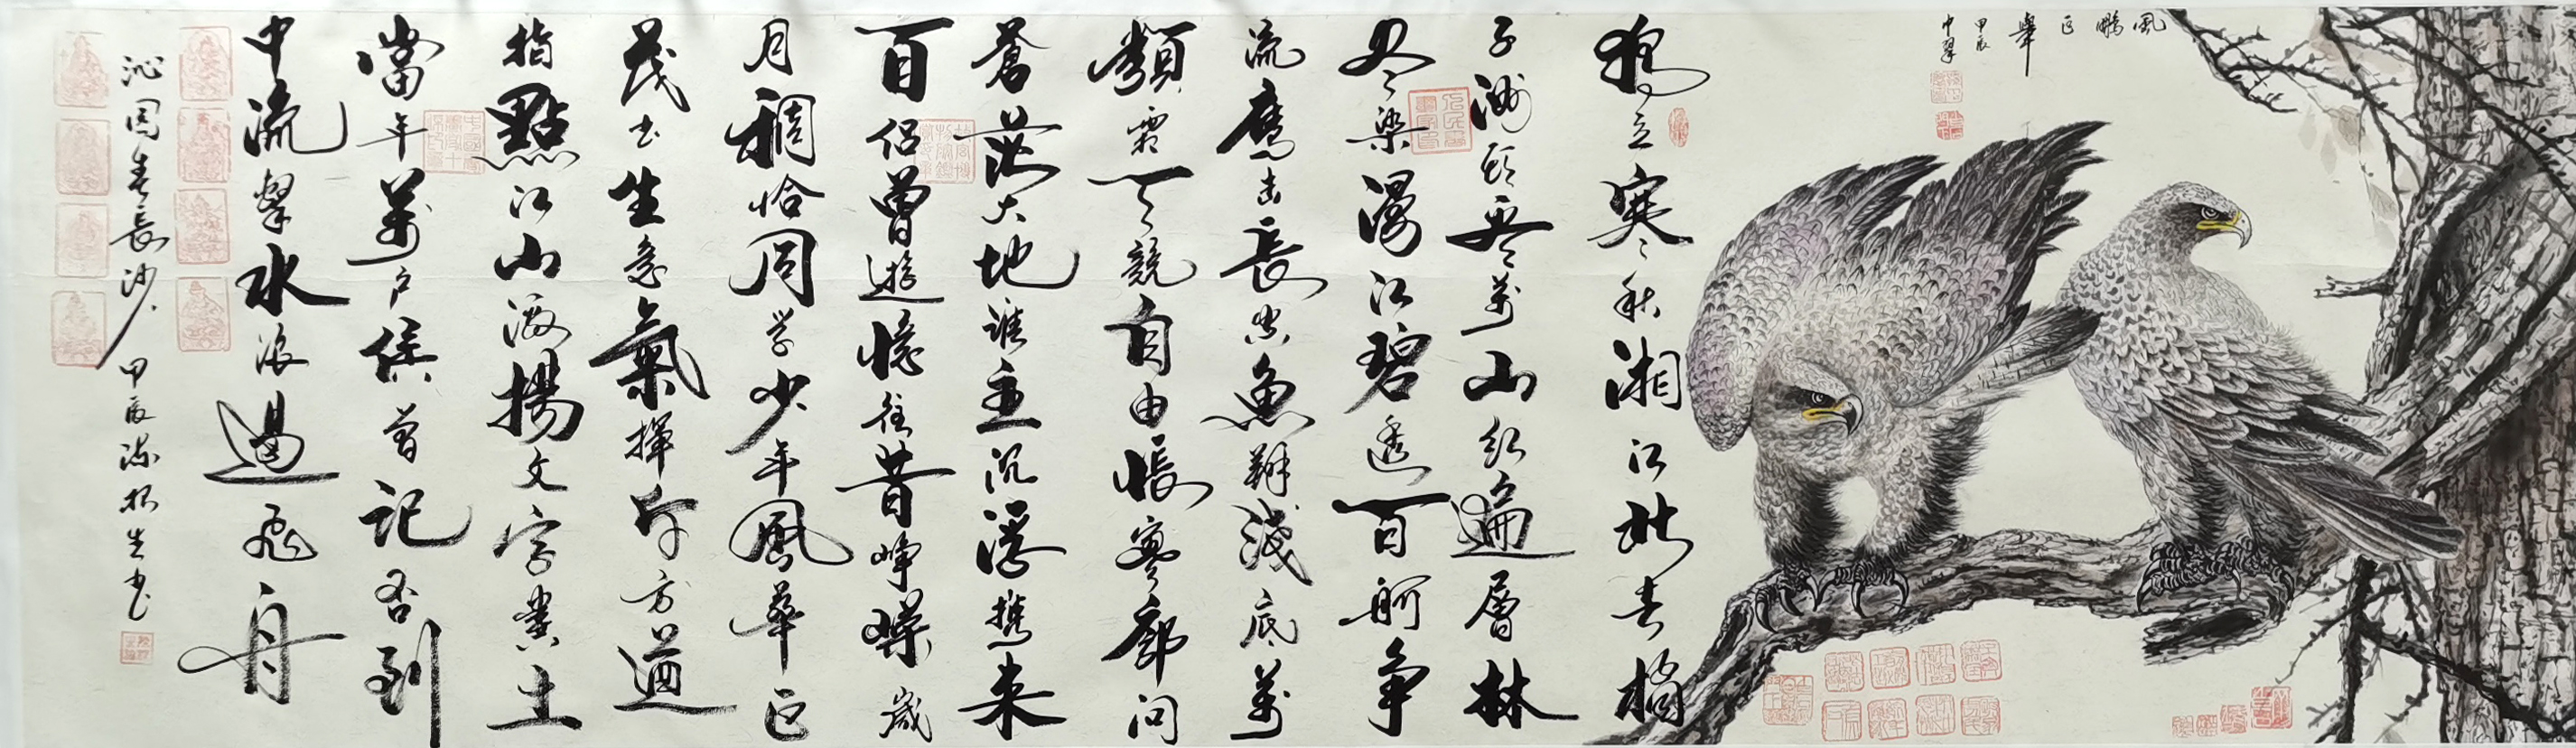 風鵬正舉
甲辰
中翠
獨立寒秋湘江北去橘
子洲頭看萬山紅遍層林
尽染漫江碧透百舸争
流鷹击長空魚翔淺底萬
類霜天競自由悵寥廓問
蒼茫大地誰主沉浮攜来
百侣曾遊憶往昔峥嵘歲
月稠恰同学少年風華正
茂书生意氣揮斥方遒
指點江山激揚文字糞土
當年萬户侯曾記否到
中流擊水浪遏飛舟
沁园春長沙 甲辰 生书